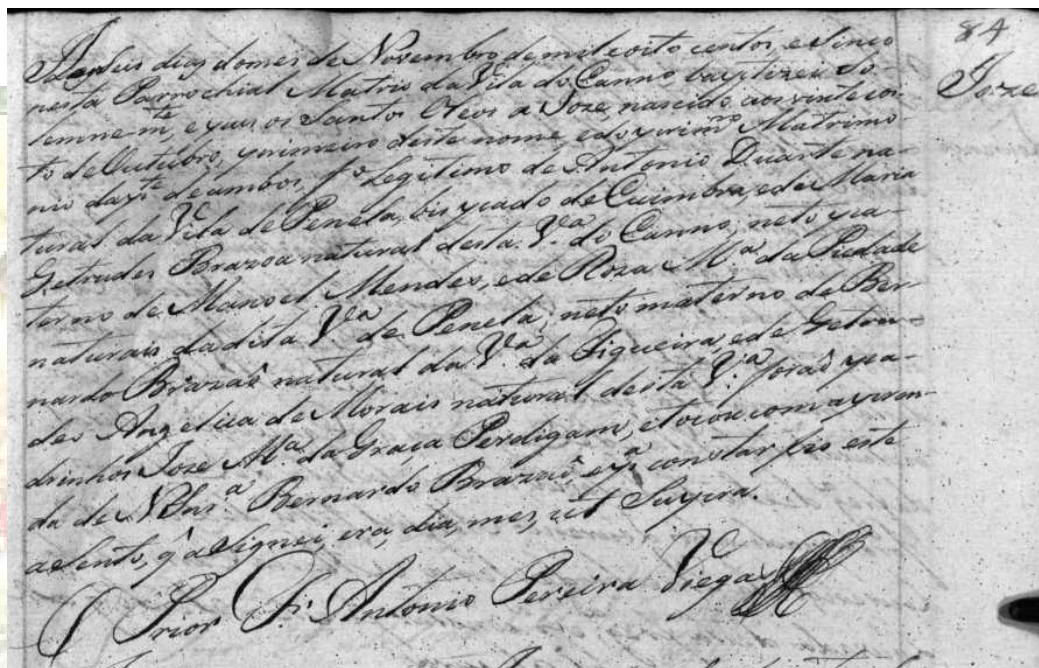 84
Joze
Aos seis dias do mes de Novembro de mil e oito centos, e sinco
nesta Parrochial Matris da Villa do Canno, baptizei So-
lemnem.te, e pus os Santos Oleos a Joze, nascido aos vinte e oi-
to de Outubro, primeiro deste nome, e do prim.ro Matrimo-
nio da p.te de ambos, f.o Legitimo de Antonio Duarte na-
tural da Vila de Penela, bispado de Cuimbra, e de Maria
Getrudes Brazoa natural desta V.a do Canno, neto pa-
terno de Manoel Mendes, e de Roza M.a da Piedade
naturais da dita V.a de Penela; neto materno de Ber-
nardo Brazaõ natural da V.a da Figueira, e de Getru-
des Angelica de Morais natural desta V.a foraõ pa-
drinhos Joze M.a da Graça Perdigam, e tocou com a pren-
da de N Snr.a Bernardo Brazaõ, e p.a constar fis este
asento, q̃ asignei, era, dia, mes, ut Supra.
O Prior Fr. Antonio Pereira Viegas